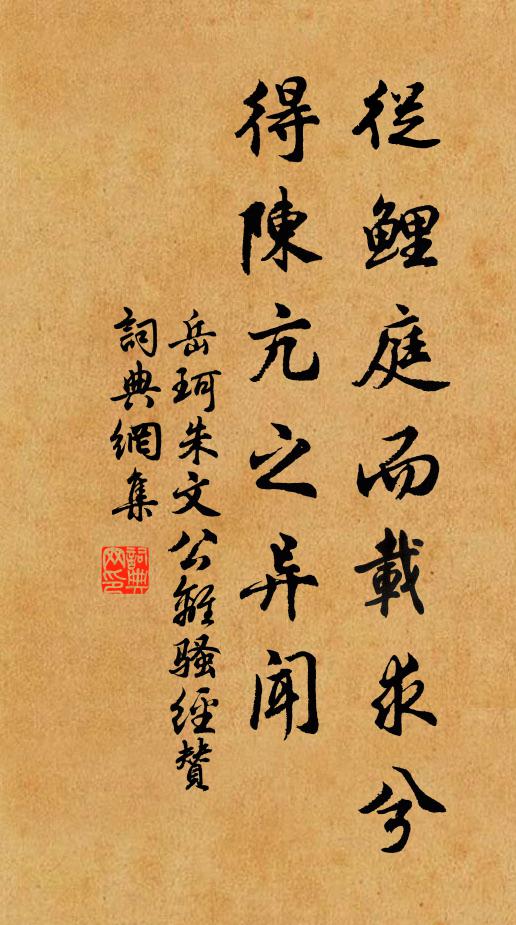 從鯉庭而載求兮
得陳亢之异聞
岳珂朱文公離騷經贊
詞典網集
詞典
网印